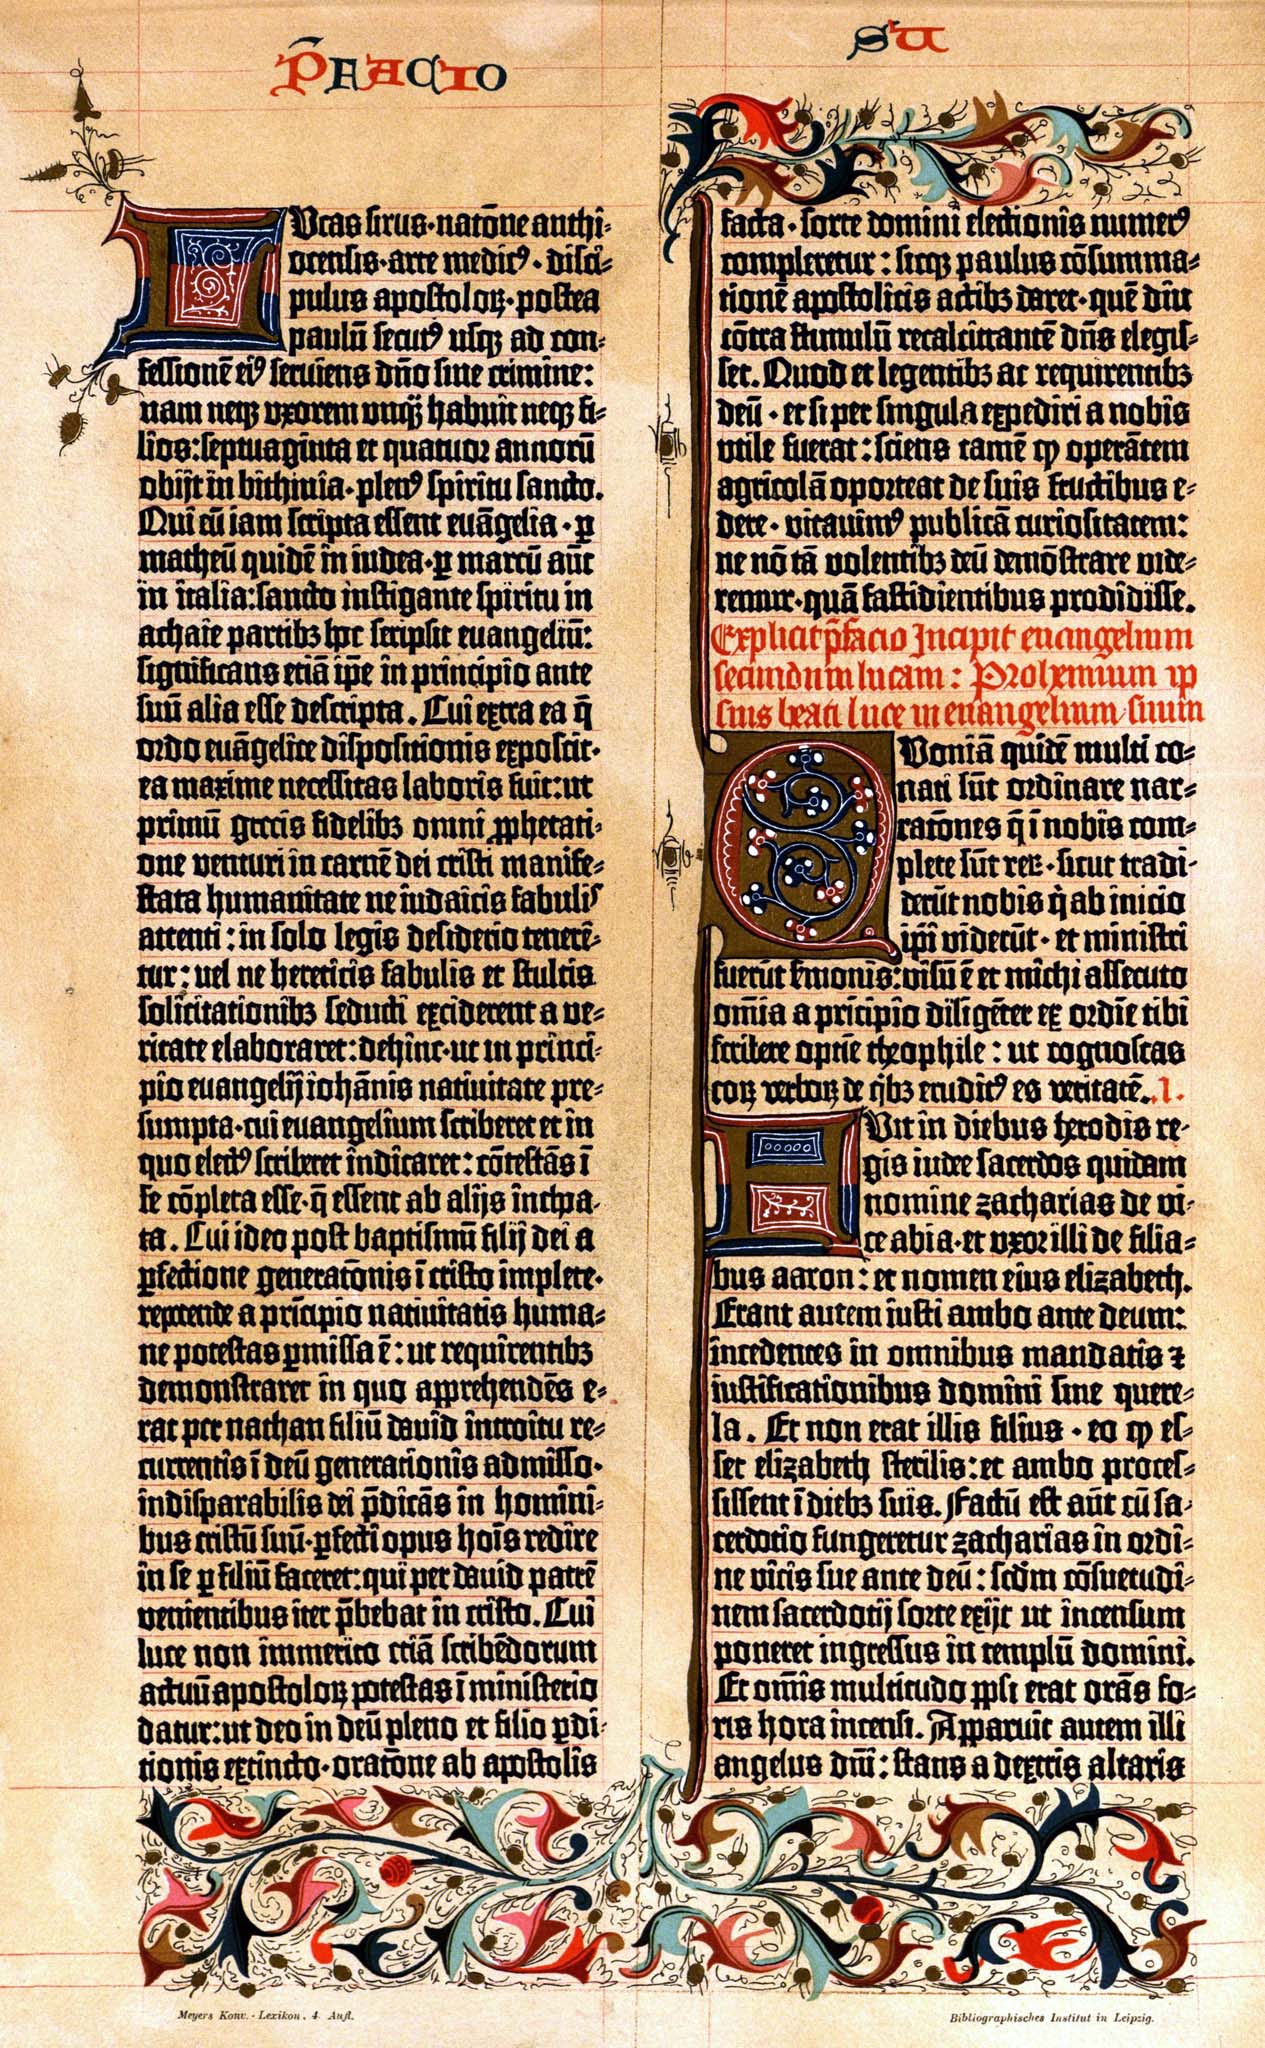 P̄FACIO
SU
Lucas sirus·natōne anthi-
ocensis·arte medic⁹·disci-
pulus apostoloꝝ·postea
paulū secut⁹ usqꝫ ad con-
fessionē ei⁹ seruiens dn̄o sine crimine:
nam neqꝫ vxorem vnqꝫ̄ habuit neqꝫ fi-
lios: septuaginta et quatuor annorū
obijt in bithinia·plen⁹ spiritu sancto.
Qui cū iam scripta essent euāgelia·ꝑ
matheū quidē in iudea·ꝑ marcū aūt
in italia: sancto instigante spiritu in
achaie partibꝫ hoc scripsit euangeliū:
significans etiā ip̄e in principio ante
suū alia esse descripta. Cui extra ea q̄
ordo euāgelice dispositionis exposcit·
ea maxime necessitas laboris fuit: ut
primū grecis fidelibꝫ omni ꝓphetati-
one venturi in carnē dei cristi manife-
stata humanitate ne iudaicis fabulis
attenti: in solo legis desiderio tenerē-
tur: uel ne hereticis fabulis et stultis
solicitationibꝫ seducti exciderent a ve-
ritate elaboraret: dehinc·ut in princi-
pio euangelij iohānis natiuitate pre-
sumpta·cui euangelium scriberet et in
quo elect⁹ scriberet indicaret: cōtestās ī
se cōpleta esse·q̄ essent ab alijs incha-
ta. Cui ideo post baptismū filij dei a
ꝑfectione generatōnis ī cristo implete·
repetende a principio natiuitatis huma-
ne potestas ꝑmissa ē: ut requirentibꝫ
demonstraret in quo apprehendēs e-
rat per nathan filiū dauid introitu re-
currentis ī deū generationis admisso·
indisparabilis dei p̄dicās in homini-
bus cristū suū·ꝑfecti opus hoīs redire
in se ꝑ filiū faceret: qui per dauid patrē
venientibus iter p̄bebat in cristo. Cui
luce non immerito etiā scribēdorum
actuū apostoloꝝ potestas ī ministerio
datur: ut deo in deū pleno et filio ꝑdi-
tionis extincto·oratōne ab apostolis
facta·sorte domini electionis numer⁹
compleretur: sicqꝫ paulus cōsumma-
tionē apostolicis actibꝫ daret·quē diu
cōtra stimulū recalcitrantē dn̄s elegis-
set. Quod et legentibꝫ ac requirentibꝫ
deū·et si per singula expediri a nobis
utile fuerat: sciens tamē ꝙ operātem
agricolā oporteat de suis fructibus e-
dere·vitauim⁹ publicā curiositatem:
ne nō tā volentibꝫ deū demōstrare vide-
remur·quā fastidientibus prodidisse.
Explicit p̄facio Incipit euangelium
secundum lucam: Prohemium ip
sius beati luce in euangelium suum
Quoniā quidē multi co-
nati sūt ordinare nar-
ratōnes q̄ ī nobis com-
plete sūt reꝝ·sicut tradi-
derūt nobis qͥ ab inicio
ip̄i viderūt·et ministri
fuerūt sermonis: visū ē et michi assecuto
omīa a principio diligēter ex ordīe tibi
scribere optīe theophile: ut cognoscas
eoꝝ verboꝝ de qͥbꝫ erudit⁹ es veritatē. I.
Fuit in diebus herodis re-
gis iudee sacerdos quidam
nomine zacharias de vi-
ce abia·et vxor illi de filia-
bus aaron: et nomen eius elizabeth.
Erant autem iusti ambo ante deum:
incedentes in omnibus mandatis ⁊
iustificationibus domini sine quere-
la. Et non erat illis filius·eo ꝙ es-
set elizabeth sterilis: et ambo proces-
sissent ī diebꝫ suis. Factū est aūt cū sa-
cerdotio fungeretur zacharias in ordi-
ne vicis sue ante deū: scd̄m cōsuetudi-
nem sacerdotij sorte exijt ut incensum
poneret ingressus in templū domini.
Et om̄is multitudo pp̄li erat orās fo-
ris hora incensi. Apparuit autem illi
angelus dn̄i: stans a dextris altaris
Meyers Konv.-Lexikon, 4. Aufl.
Bibliographisches Institut in Leipzig.